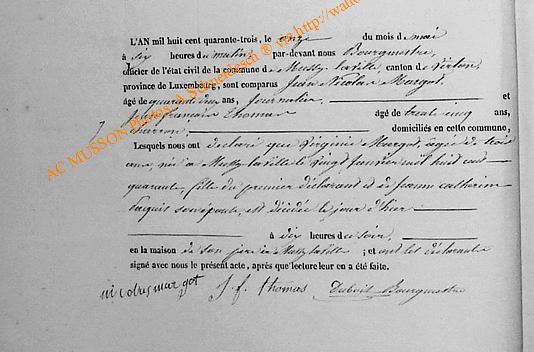 L'AN mil huit cent quarante-trois, le onze du mois de mai
à dix heures du matin, par-devant nous Bourgmestre,
officier de l'état civil de la commune de Mussy-la-ville, canton de Virton,
province de Luxembourg, sont comparus Jean Nicolas Margot,
âgé de quarante ans, journalier, et
Jean françois Thomas âgé de trente cinq ans,
charron, domiciliés en cette commune,
Lesquels nous ont déclaré que Virginie Margot, agée de trois
ans, née à Mussy-la-ville le vingt janvier mil huit cent
quarante, fille du premier déclarant et de jeanne catherine
son épouse, est décédée le jour d'hier
à dix heures du soir,
en la maison de son père à Mussy-la-ville ; et ont les déclarants
signé avec nous le présent acte, après que lecture leur en a été faite.
nicolas margot J. f. thomas Bourgmestre
AC MUSSON Photos: A. Schoendesch ® via http://wall